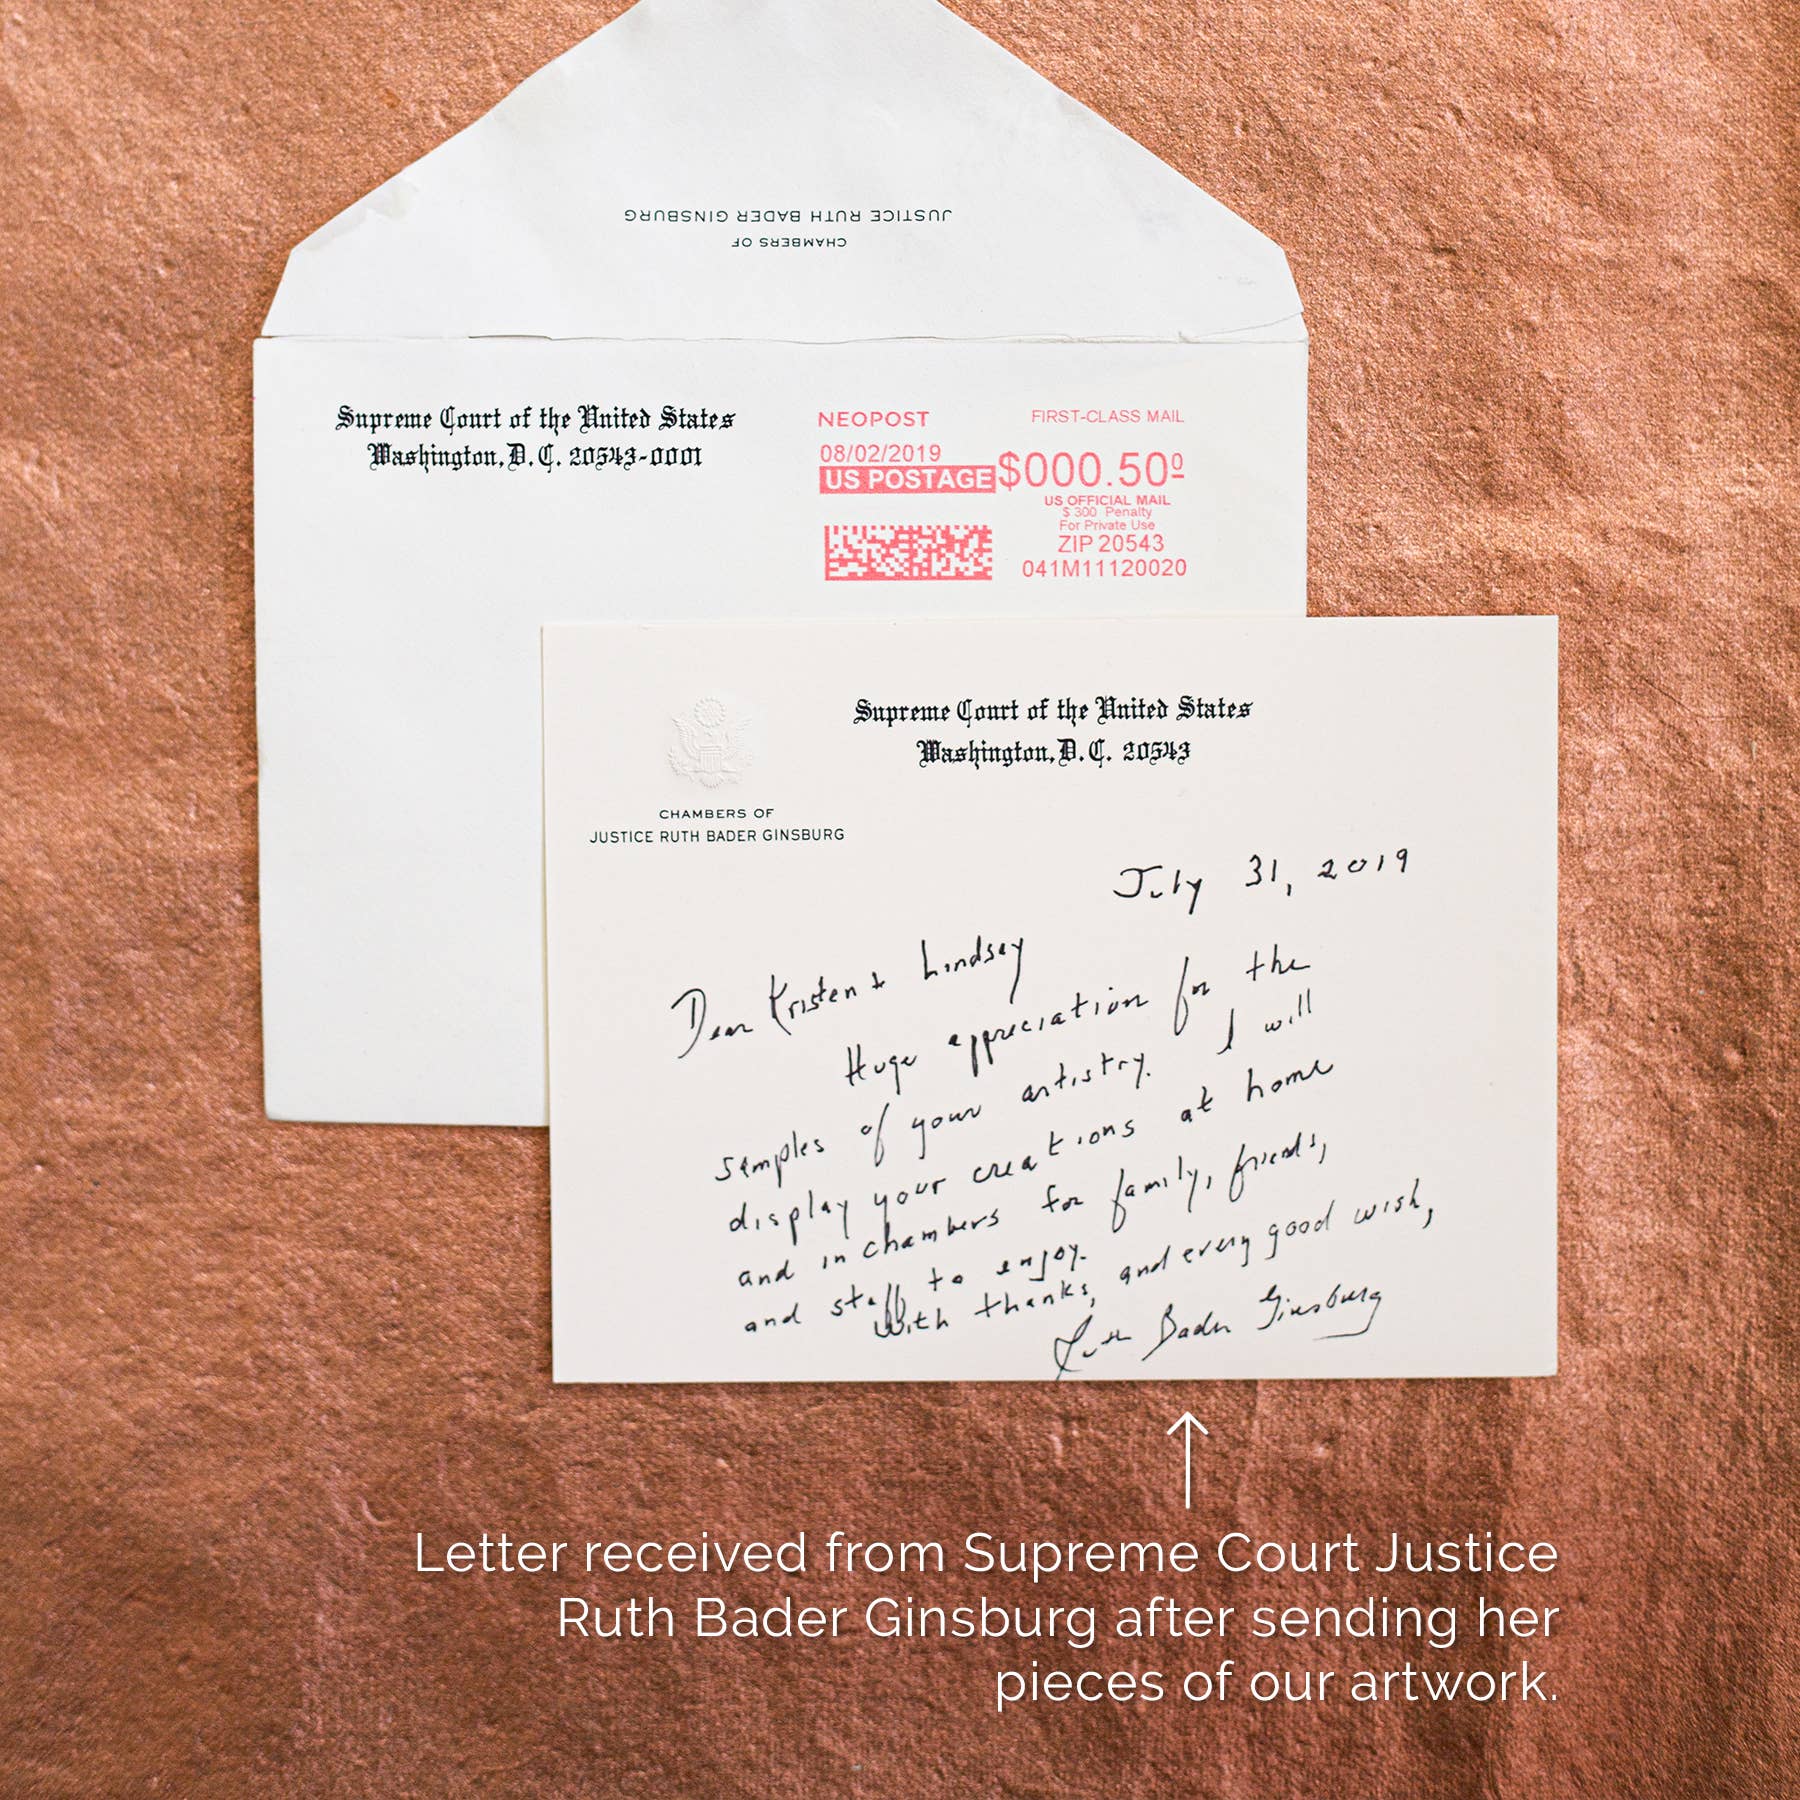 JUSTICE RUTH BADER GINSBURG
CHAMBERS OF
Supreme Court of the United States
Washington, D. C. 20543-0001
NEOPOST
FIRST-CLASS MAIL
08/02/2019
US POSTAGE $000.50⁰
US OFFICIAL MAIL
$ 300 Penalty
For Private Use
ZIP 20543
041M11120020
Supreme Court of the United States
Washington, D. C. 20543
CHAMBERS OF
JUSTICE RUTH BADER GINSBURG
July 31, 2019
Dear Kristen + Lindsey
Huge appreciation for the
samples of your artistry. I will
display your creations at home
and in chambers for family, friends,
and staff to enjoy.
With thanks, and every good wish,
Ruth Bader Ginsburg
Letter received from Supreme Court Justice
Ruth Bader Ginsburg after sending her
pieces of our artwork.